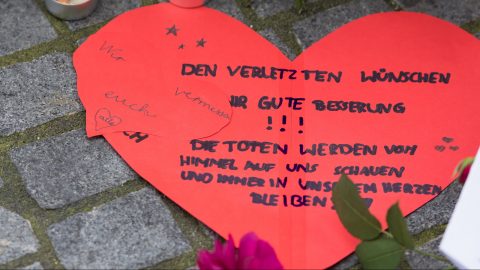 Wir
euch
vermissen
alle
DEN VERLETZTEN WÜNSCHEN
WIR GUTE BESSERUNG
!!!
DIE TOTEN WERDEN VOM
HIMMEL AUF UNS SCHAUEN
UND IMMER IN UNSEREM HERZEN
BLEIBEN